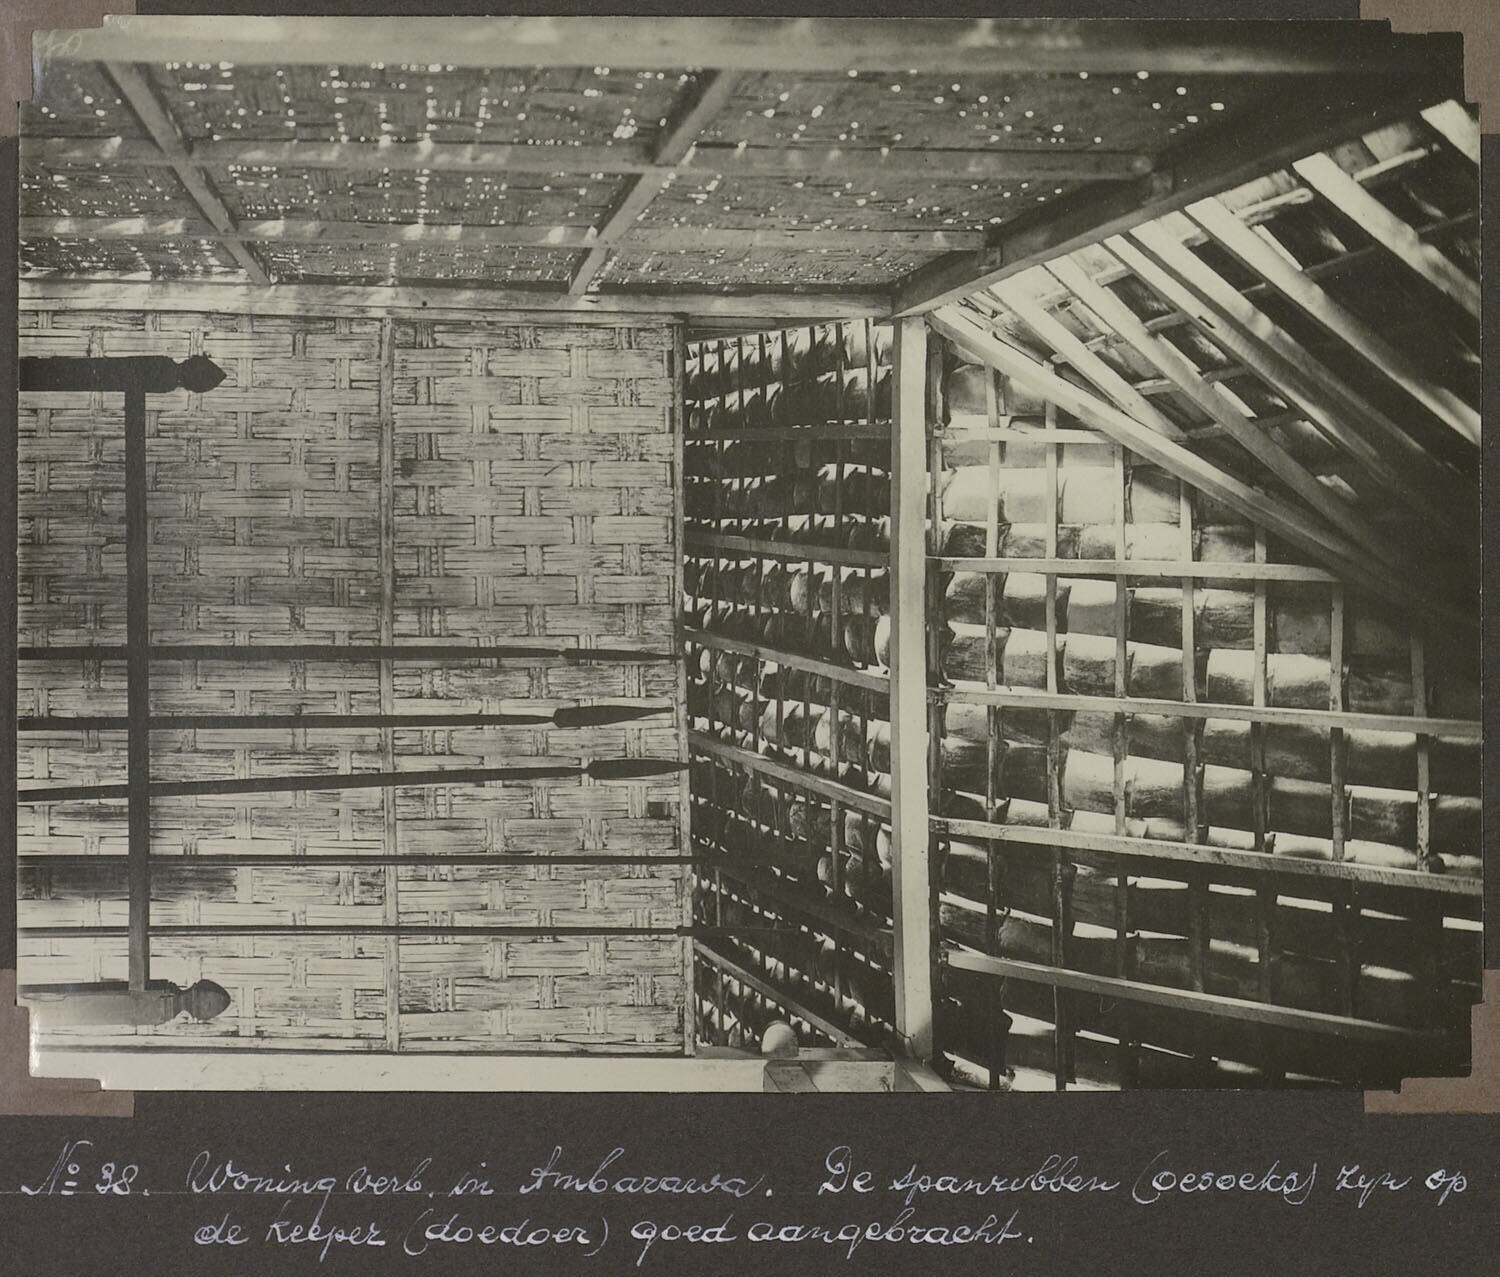 No 38. Woning verb. in Ambarawa. De spanribben (oesoeks) zijn op
de keeper (doedoer) goed aangebracht.